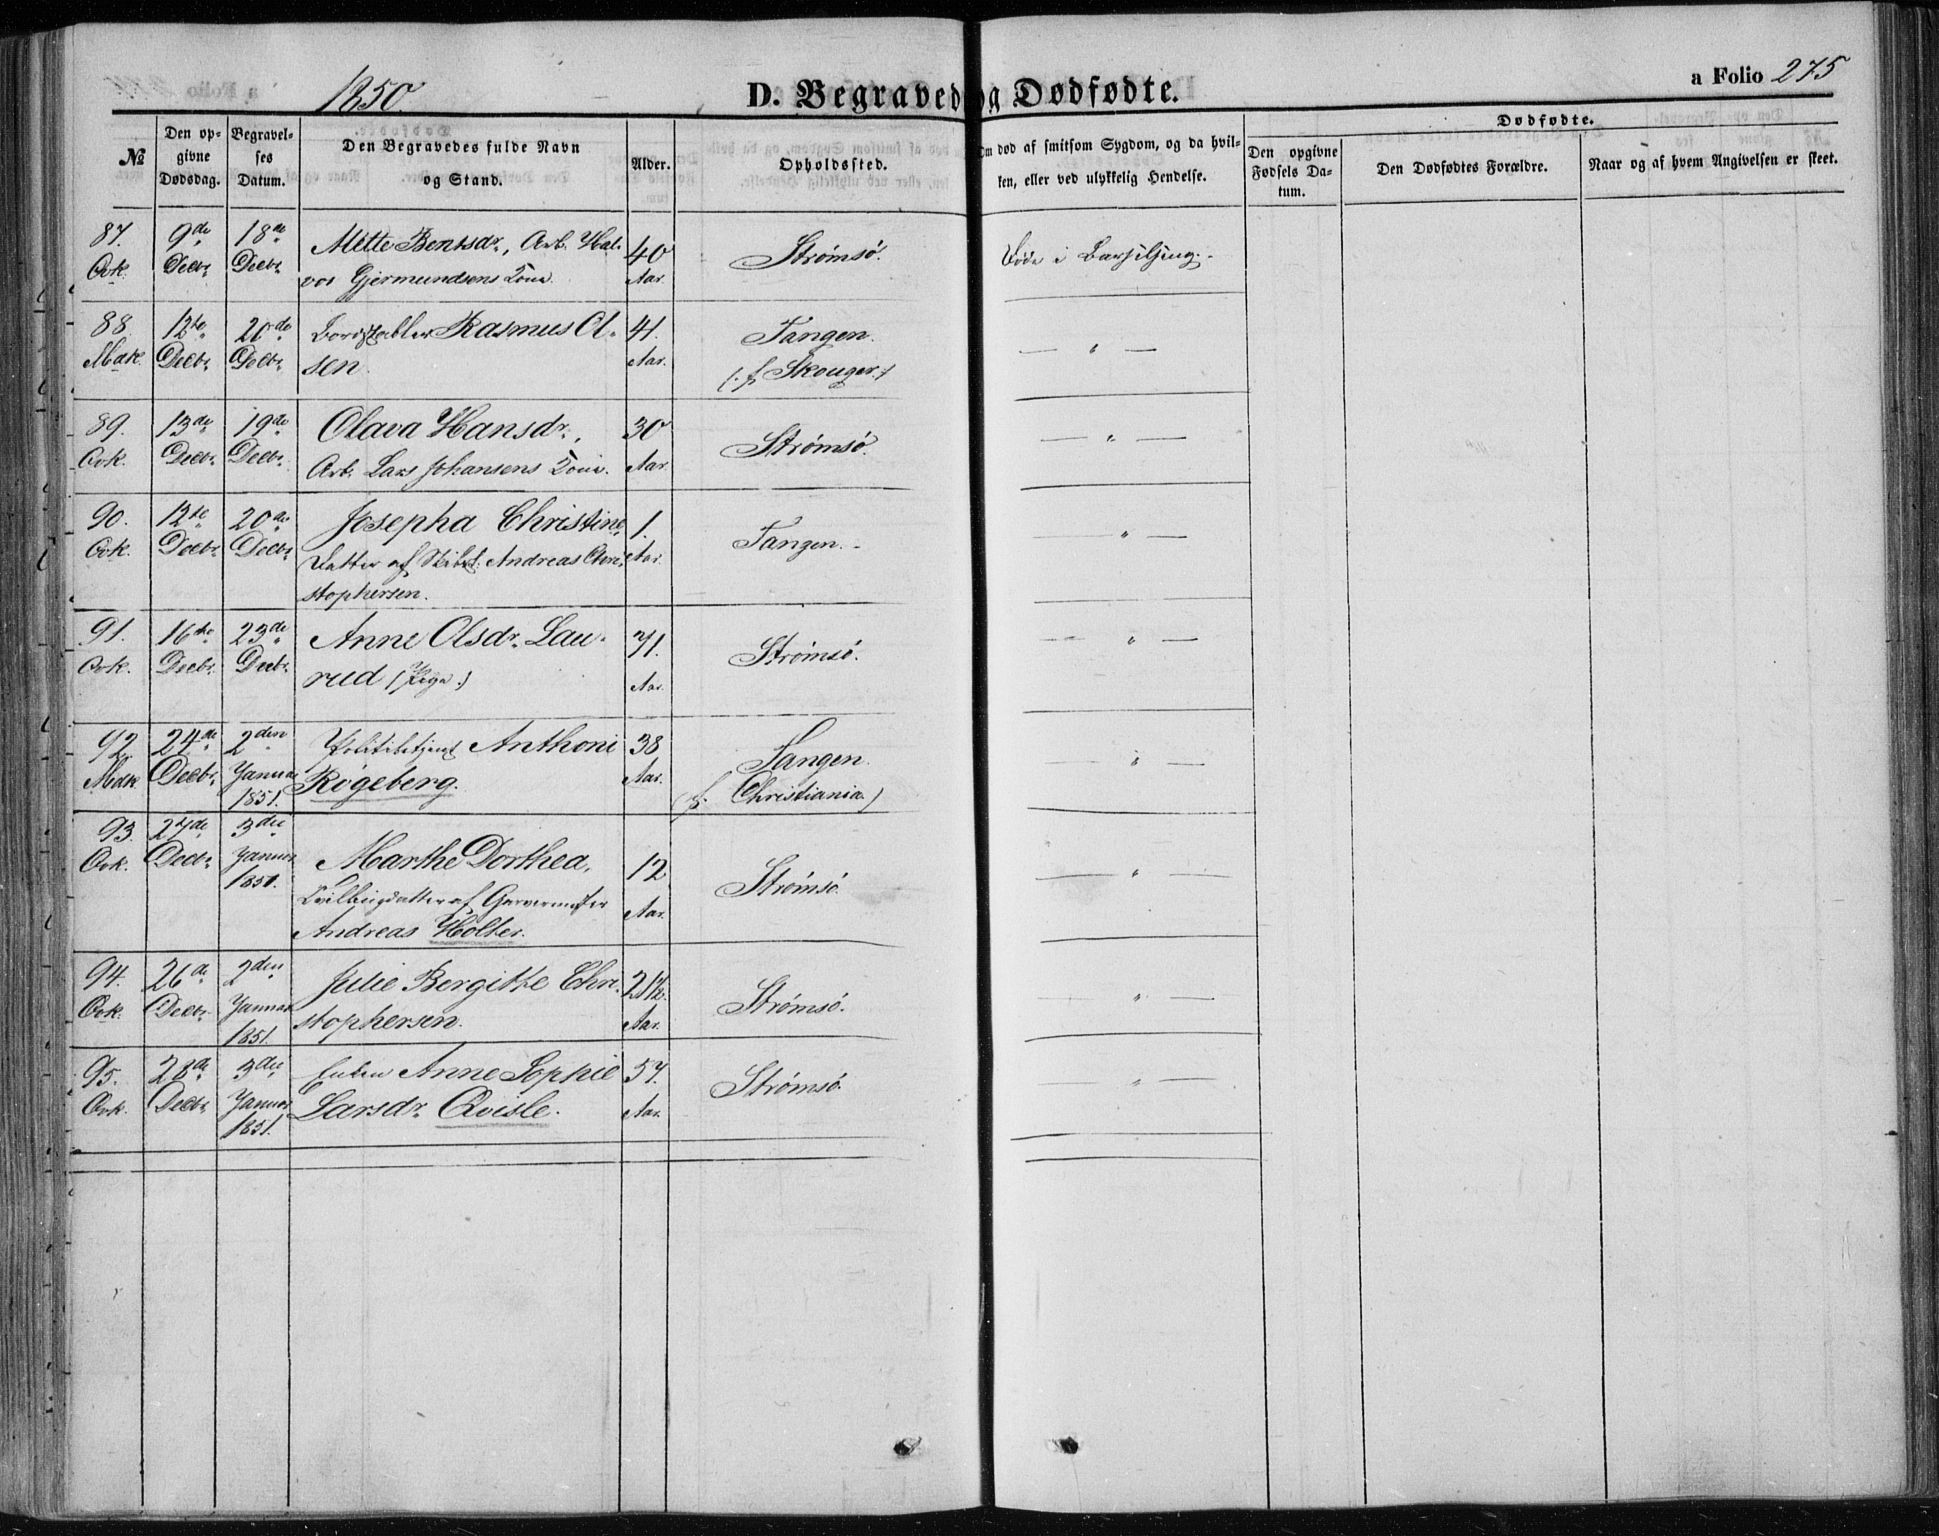 1850
D. Begravede og Dødfødte.
a Folio 275
№
Den op-
givne
Dødsdag.
Begravel-
ses
Datum.
Den Begravedes fulde Navn
og Stand.
Alder.
Opholdssted.
Om død af smitsom Sygdom, og da hvil-
ken, eller ved ulykkelig Hendelse.
Dødfødte.
Den opgivne
Fødsels Da-
tum.
Den Dødfødtes Forældre.
Naar og af hvem Angivelsen er skeet.
87. 9de 18de Mette Bentsdr., Arb. Hal- 40 Strømsø. Døde i Barselseng.
Qvk. Decbr. Decbr. vor Gjermundsens Kone. Aar.
88. 12te 20de Bordstabler Rasmus Ol- 41. Tangen. — " —
Mdk. Decbr. Decbr. sen. Aar. (f. Skouger.)
89. 13de 19de Olava Hansdr., 30 Strømsø. — " —
Qvk. Decbr. Decbr. Arb. Lars Johansens Kone. Aar.
90. 12te 20de Josepha Christine, 1. Tangen. — " —
Qvk. Decbr. Decbr. Datter af Skibst. Andreas Chri- Aar.
stophersen.
91. 16de 23de Anne Olsdr. Lau- 71. Strømsø. — " —
Qvk. Decbr. Decbr. rud (Pige.) Aar.
92. 24de 2den Politibetjent Anthoni 38 Tangen. — " —
Mdk. Decbr. Januar Røgeberg. Aar. (f. Christiania.)
1851.
93. 27de 3die Marthe Dorthea, 12 Strømsø. — " —
Qvk. Decbr. Januar Tvillingdatter af Garvermester Aar.
1851. Andreas Holter.
94. 26de 2den Julie Bergitte Chri- 21½ Strømsø. — " —
Qvk. Decbr. Januar stophersen. Aar.
1851.
95. 28de 3die Enken Anne Sophie 57. Strømsø. — " —
Qvk. Decbr. Januar Larsdr. Qvisle. Aar.
1851.